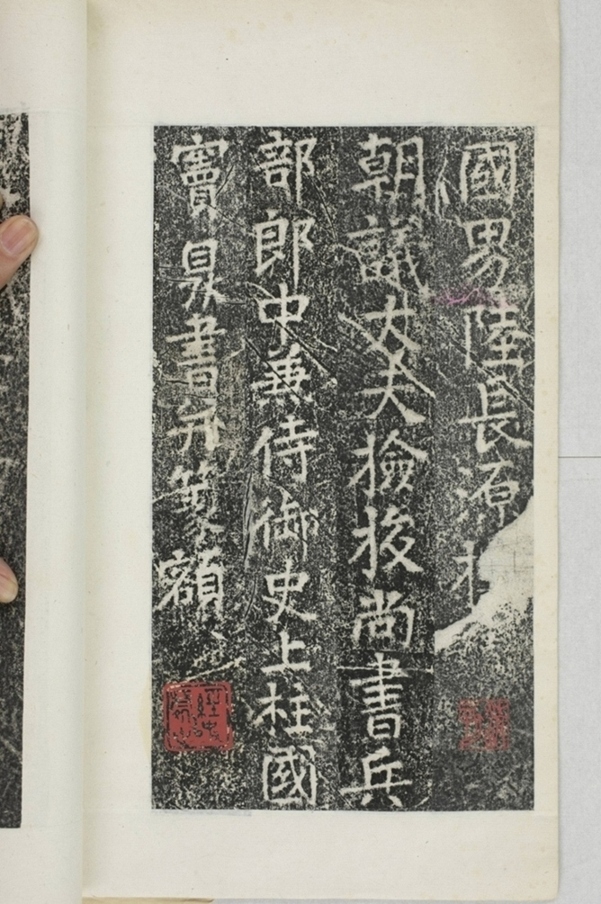 國男陸長源
朝議大夫撿挍尚書兵
部郎中兼侍御史上柱國
竇臮書并篆額